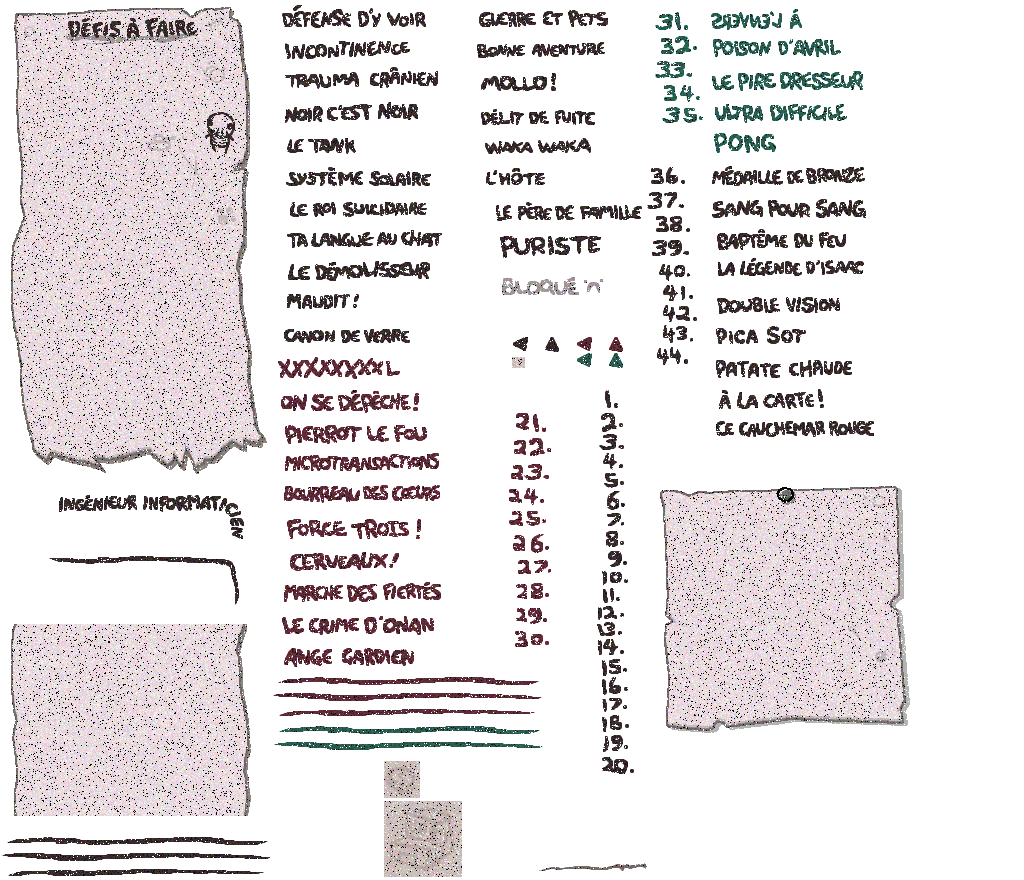 DÉFIS À FAIRE
INGÉNIEUR INFORMATICIEN
DÉFENSE D'Y VOIR
INCONTINENCE
TRAUMA CRÂNIEN
NOIR C'EST NOIR
LE TANK
SYSTÈME SOLAIRE
LE ROI SUICIDAIRE
TA LANGUE AU CHAT
LE DÉMOLISSEUR
MAUDIT!
CANON DE VERRE
XXXXXXXXL
ON SE DÉPÊCHE!
PIERROT LE FOU
MICROTRANSACTIONS
BOURREAU DES CŒURS
FORCE TROIS!
CERVEAUX!
MARCHE DES FIERTÉS
LE CRIME D'ONAN
ANGE GARDIEN
GUERRE ET PETS
BONNE AVENTURE
MOLLO!
DÉLIT DE FUITE
WAKA WAKA
L'HÔTE
LE PÈRE DE FAMILLE
PURISTE
BLOQUÉ 'n'
21.
22.
23.
24.
25.
26.
27.
28.
29.
30.
1.
2.
3.
4.
5.
6.
7.
8.
9.
10.
11.
12.
13.
14.
15.
16.
17.
18.
19.
20.
31.
32.
33.
34.
35.
36.
37.
38.
39.
40.
41.
42.
43.
44.
À L'ENVERS
POISON D'AVRIL
LE PIRE DRESSEUR
ULTRA DIFFICILE
PONG
MÉDAILLE DE BRONZE
SANG POUR SANG
BAPTÊME DU FEU
LA LÉGENDE D'ISAAC
DOUBLE VISION
PICA SOT
PATATE CHAUDE
À LA CARTE!
CE CAUCHEMAR ROUGE